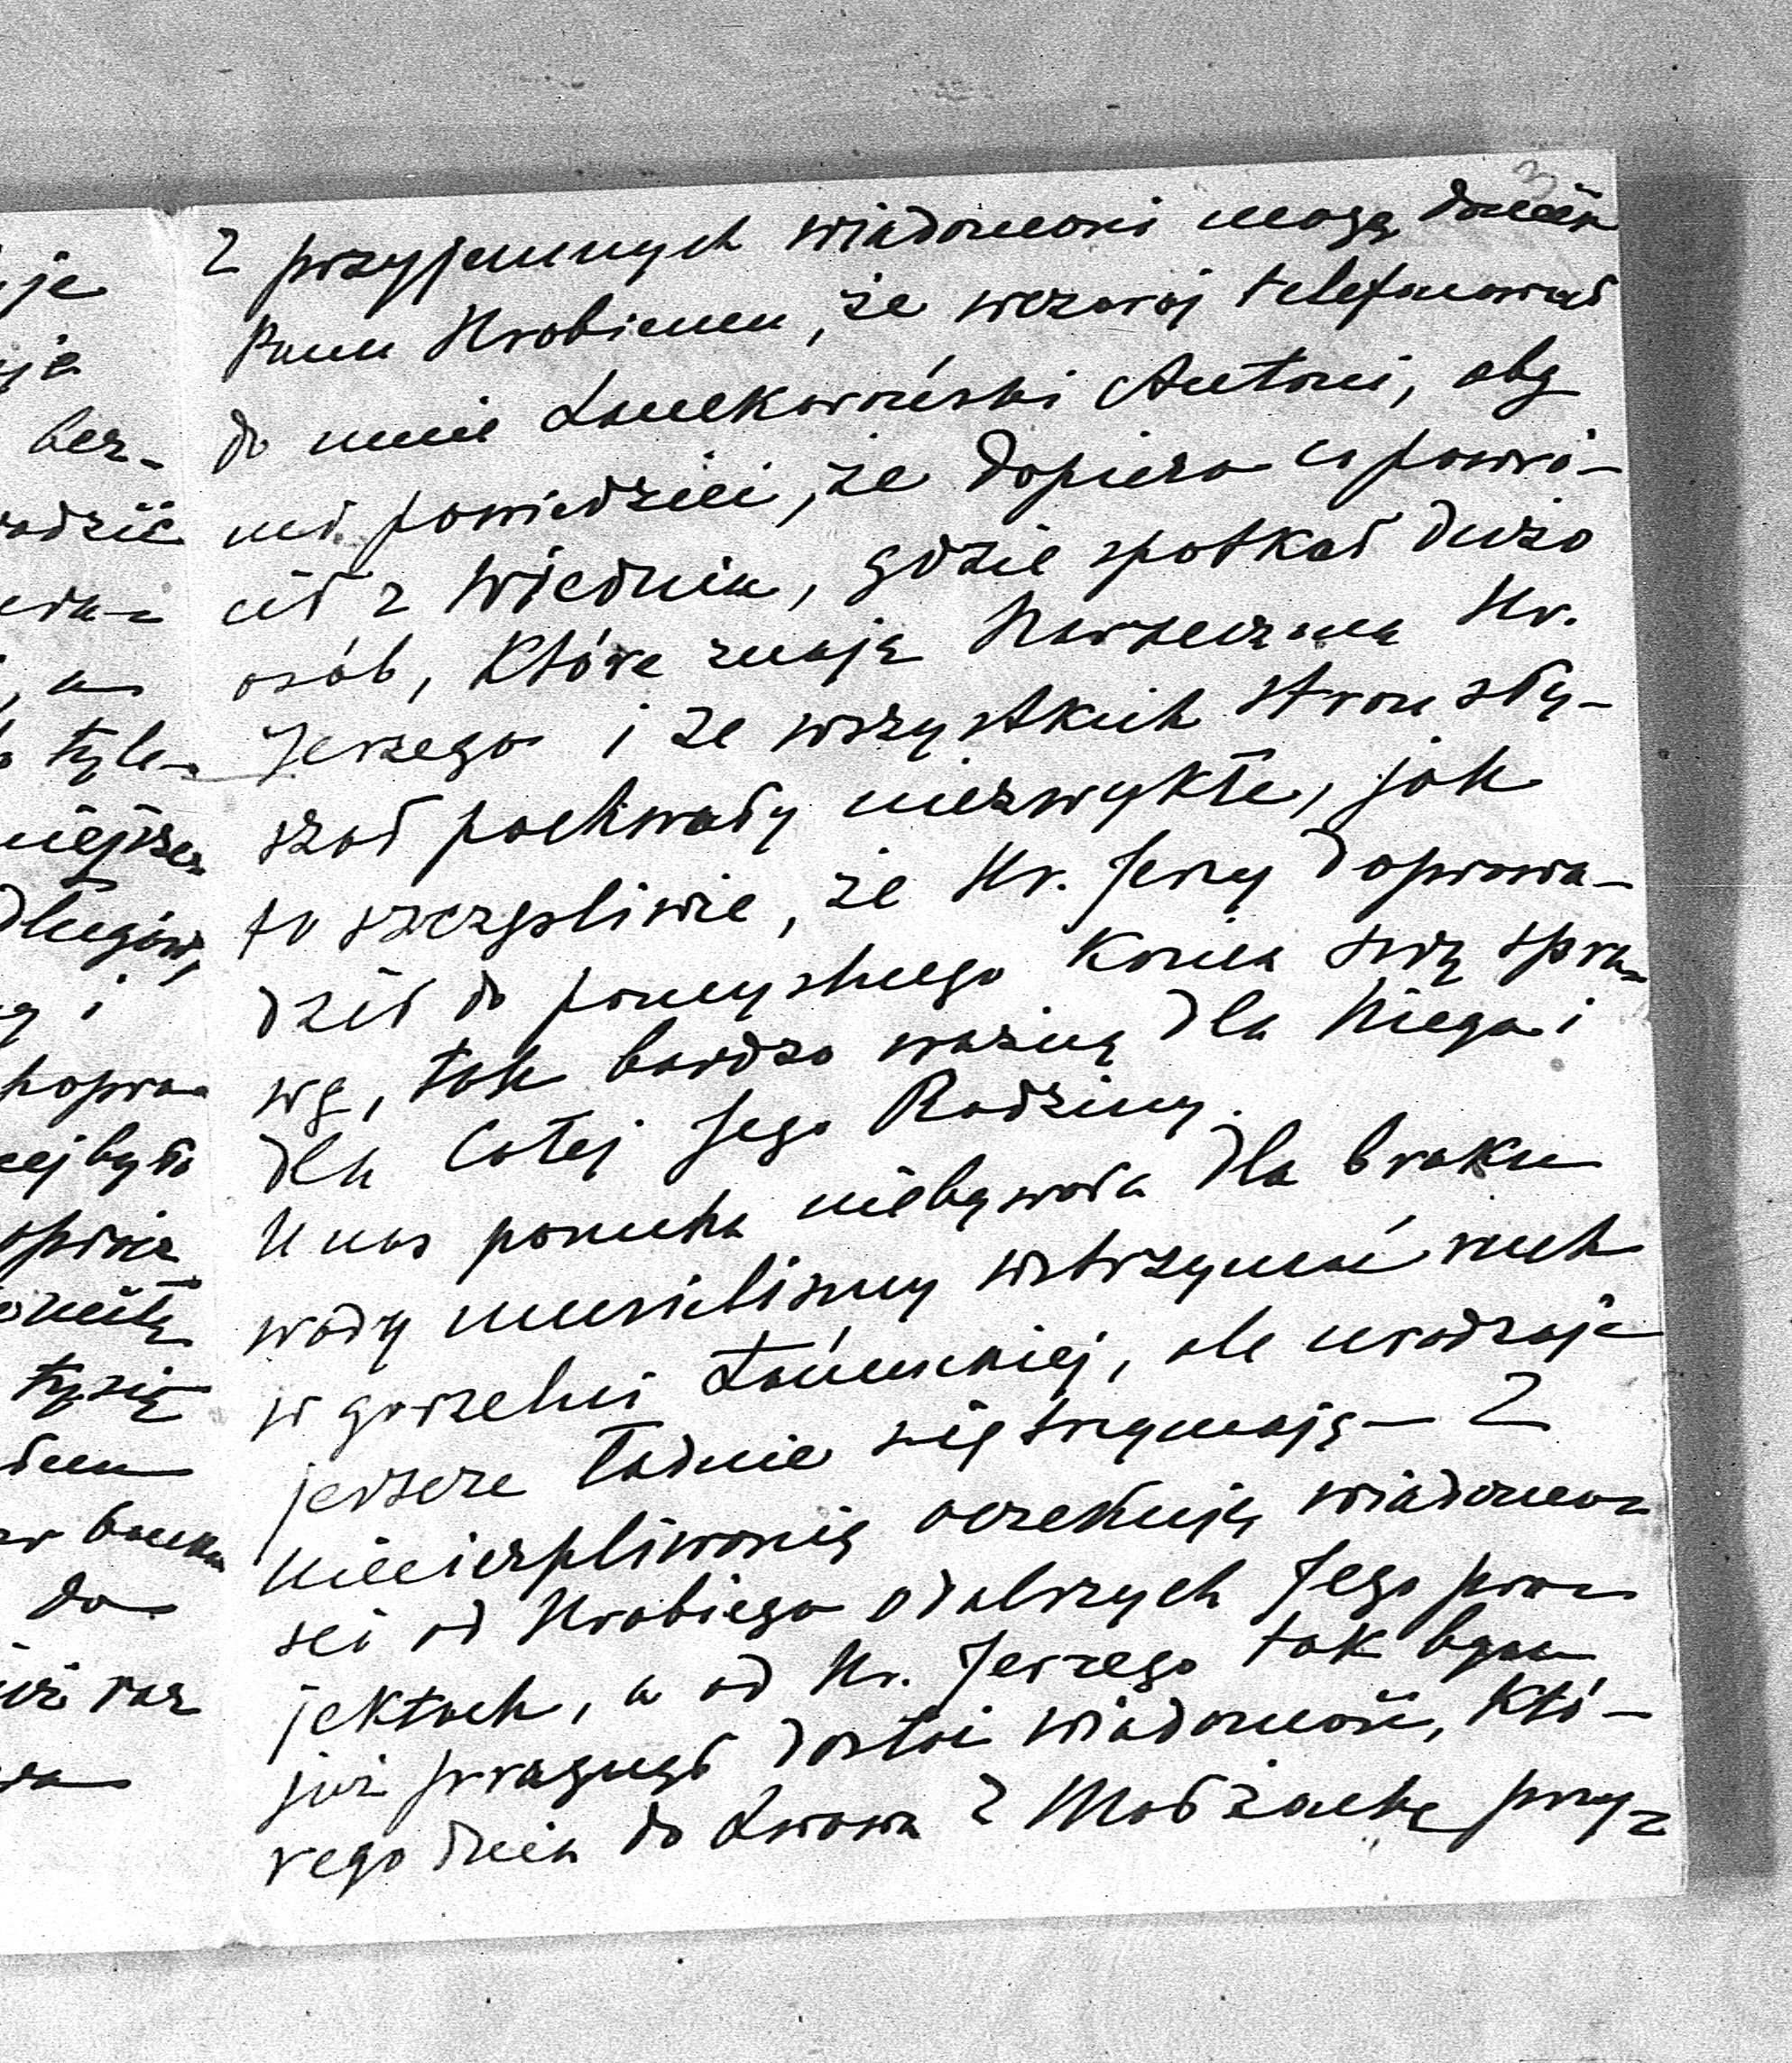 3
Z przyjemnych wiadomości mogę donieść
Panu Hrabiemu, że wczoraj telefonował
do mnie Antoni, aby
mi powiedzieć, że dopiero co powró-
cił z Wiednia, gdzie spotkał dużo
osób, które znają Narzeczoną Hr.
Jerzego i ze wszystkich stron sły-
szał pochwały niezwykłe, jak
to szczęśliwie, że Hr. Jerzy doprowa-
dził do pomyślnego końca swą spra-
wę, tak bardzo ważną dla Niego i
dla całej Jego Rodziny.
U nas posucha niebywała dla braku
wody musieliśmy wstrzymać ruch
w gorzelni Łańcuckiej, ale urodzaje
jeszcze ładnie się trzymają – Z
niecierpliwością oczekuję wiadomo-
ści od Hrabiego o dalszych Jego pro-
jektach, a od Hr. Jerzego tak bym
już pragnął dostać wiadomość, któ-
rego dnia do Lwowa z Małżonką przy-
je
ja
bez-
radzić
a
tyle
niejsze
długów,
i
popra-
ej było
oprócz
tysię
banku
do
już raz